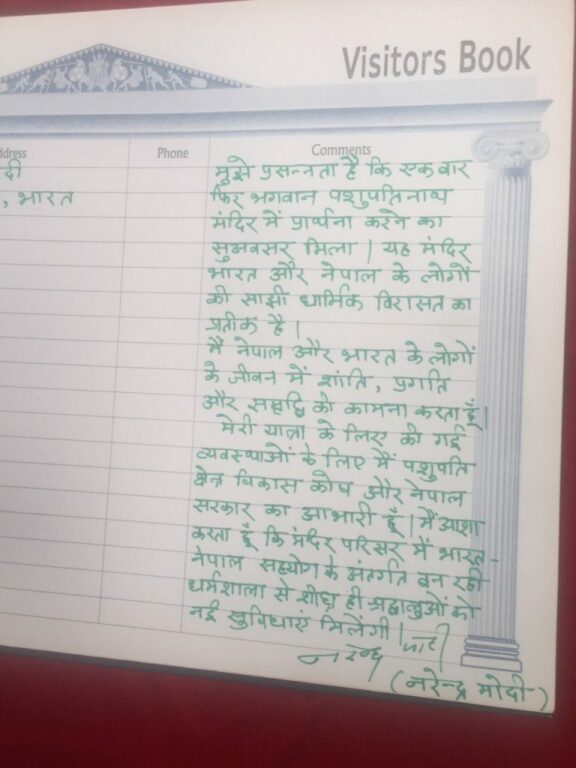 Visitors Book
ddress
Phone
Comments
दी
, भारत
मुझे प्रसन्नता है कि एक बार
फिर भगवान पशुपतिनाथ
मंदिर में प्रार्थना करने का
सुअवसर मिला । यह मंदिर
भारत और नेपाल के लोगों
की साझी धार्मिक विरासत का
प्रतीक है ।
मैं नेपाल और भारत के लोगों
के जीवन में शांति, प्रगति
और समृद्धि की कामना करता हूँ ।
मेरी यात्रा के लिए की गई
व्यवस्थाओं के लिए मैं पशुपति
क्षेत्र विकास कोष और नेपाल
सरकार का आभारी हूँ । मैं आशा
करता हूँ कि मंदिर परिसर में भारत-
नेपाल सहयोग के अंतर्गत बन रही
धर्मशाला से शीघ्र ही श्रद्धालुओं को
नई सुविधाएं मिलेंगी ।
नरेन्द्र मोदी
(नरेन्द्र मोदी)